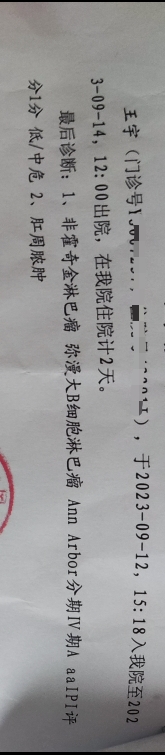 王宇（门诊号），于2023-09-12，15:18入我院至202
3-09-14，12:00出院，在我院住院计2天。
最后诊断：1、非霍奇金淋巴瘤 弥漫大B细胞淋巴瘤 Ann Arbor分期IV期A aaIPI评
分1分 低/中危 2、肛周脓肿